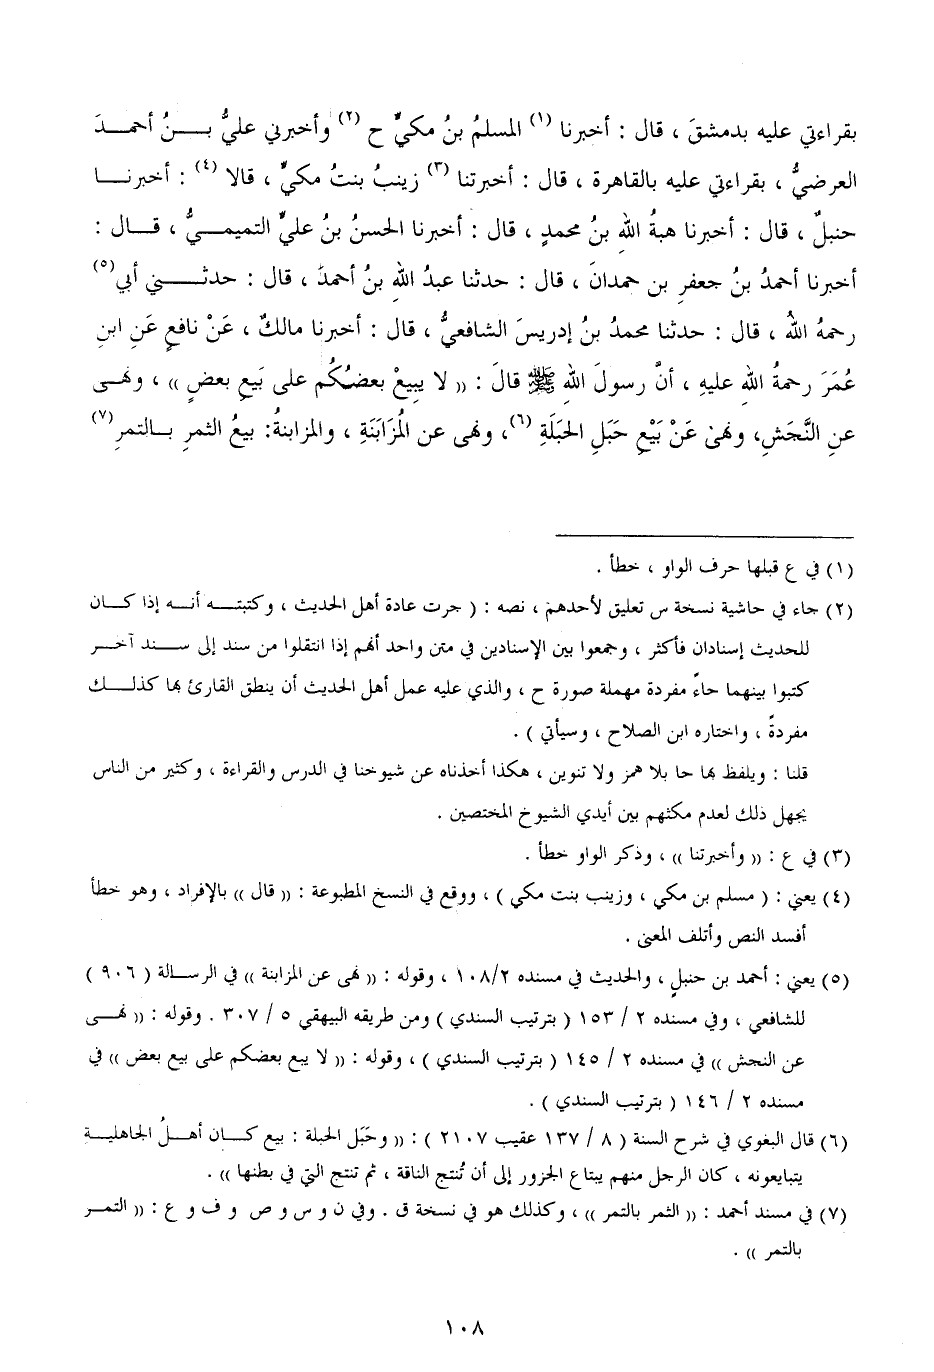 بقراءتي عليه بدمشقَ ، قال : أخبرنا (١) المسلمُ بنُ مكيٍّ ح (٢) وأخبرني عليُّ بـــنُ أحمـــدَ
العرضيُّ ، بقراءتي عليه بالقاهرة ، قال : أخبرتنا (٣) زينبُ بنتُ مكيٍّ ، قالا (٤) : أخبرنـــا
حنبلٌ ، قال : أخبرنا هبةُ اللهِ بنُ محمدٍ ، قال : أخبرنا الحسنُ بنُ عليٍّ التميمـــيُّ ، قـــال :
أخبرنا أحمدُ بنُ جعفرِ بن حمدانَ ، قال : حدثنا عبدُ اللهِ بنُ أحمدَ ، قال : حدثـــني أبي(٥)
رحمهُ اللهُ ، قال : حدثنا محمدُ بنُ إدريسَ الشافعيُّ ، قال : أخبرنا مالكٌ ، عَنْ نافعٍ عَنِ ابنِ
عُمَرَ رحمةُ اللهِ عليهِ ، أنَّ رسولَ اللهِ ﷺ قالَ : (( لا يبيعْ بعضُكُم على بَيعِ بعضٍ )) ، ونهـى
عنِ النَّجَشِ، ونهىٰ عَنْ بَيْعِ حَبَلِ الحَبَلَةِ (٦)، ونهى عن الْمُزَابَنَةِ ، والمزابنةُ: بيعُ الثمرِ بـالتمرِ(٧)
(١) في ع قبلها حرف الواو ، خطأ .
(٢) جاء في حاشية نسخة س تعليق لأحدهم ، نصه : ( جرت عادة أهل الحديث ، وكتبتـــه أنـــه إذا كـــان
للحديث إسنادان فأكثر ، وجمعوا بين الإسنادين في متن واحد أنهم إذا انتقلوا من سند إلى ســـند آخـــر
كتبوا بينهما حاءً مفردة مهملة صورة ح ، والذي عليه عمل أهل الحديث أن ينطق القارئ بها كذلـــك
مفردةً ، واختاره ابن الصلاح ، وسيأتي ) .
قلنا : ويلفظ بها حا بلا همز ولا تنوين ، هكذا أخذناه عن شيوخنا في الدرس والقراءة ، وكثير من الناس
يجهل ذلك لعدم مكثهم بين أيدي الشيوخ المختصين .
(٣) في ع : (( وأخبرتنا )) ، وذكر الواو خطأ .
(٤) يعني : ( مسلم بن مكي ، وزينب بنت مكي ) ، ووقع في النسخ المطبوعة : (( قال )) بالإفراد ، وهو خطأ
أفسد النص وأتلف المعنى .
(٥) يعني : أحمد بن حنبلٍ ، والحديث في مسنده ١٠٨/٢ ، وقوله : (( نهى عن المزابنة )) في الرسالة ( ٩٠٦ )
للشافعي ، وفي مسنده ٢ / ١٥٣ ( بترتيب السندي ) ومن طريقه البيهقي ٥ / ٣٠٧ . وقوله : (( نهـــى
عن النجش )) في مسنده ٢ / ١٤٥ ( بترتيب السندي ) ، وقوله : (( لا يبع بعضكم على بيع بعض )) في
مسنده ٢ / ١٤٦ ( بترتيب السندي ) .
(٦) قال البغوي في شرح السنة ( ٨ / ١٣٧ عقيب ٢١٠٧ ) : (( وحَبَل الحبلة : بيع كـــان أهـــلُ الجاهليـــة
يتبايعونه ، كان الرجل منهم يبتاع الجزور إلى أن تُنتج الناقة ، ثم تنتج التي في بطنها )) .
(٧) في مسند أحمد : (( الثمر بالتمر )) ، وكذلك هو في نسخة ق . وفي ن و س و ص و ف و ع : (( التمـــر
بالتمر )) .
١٠٨